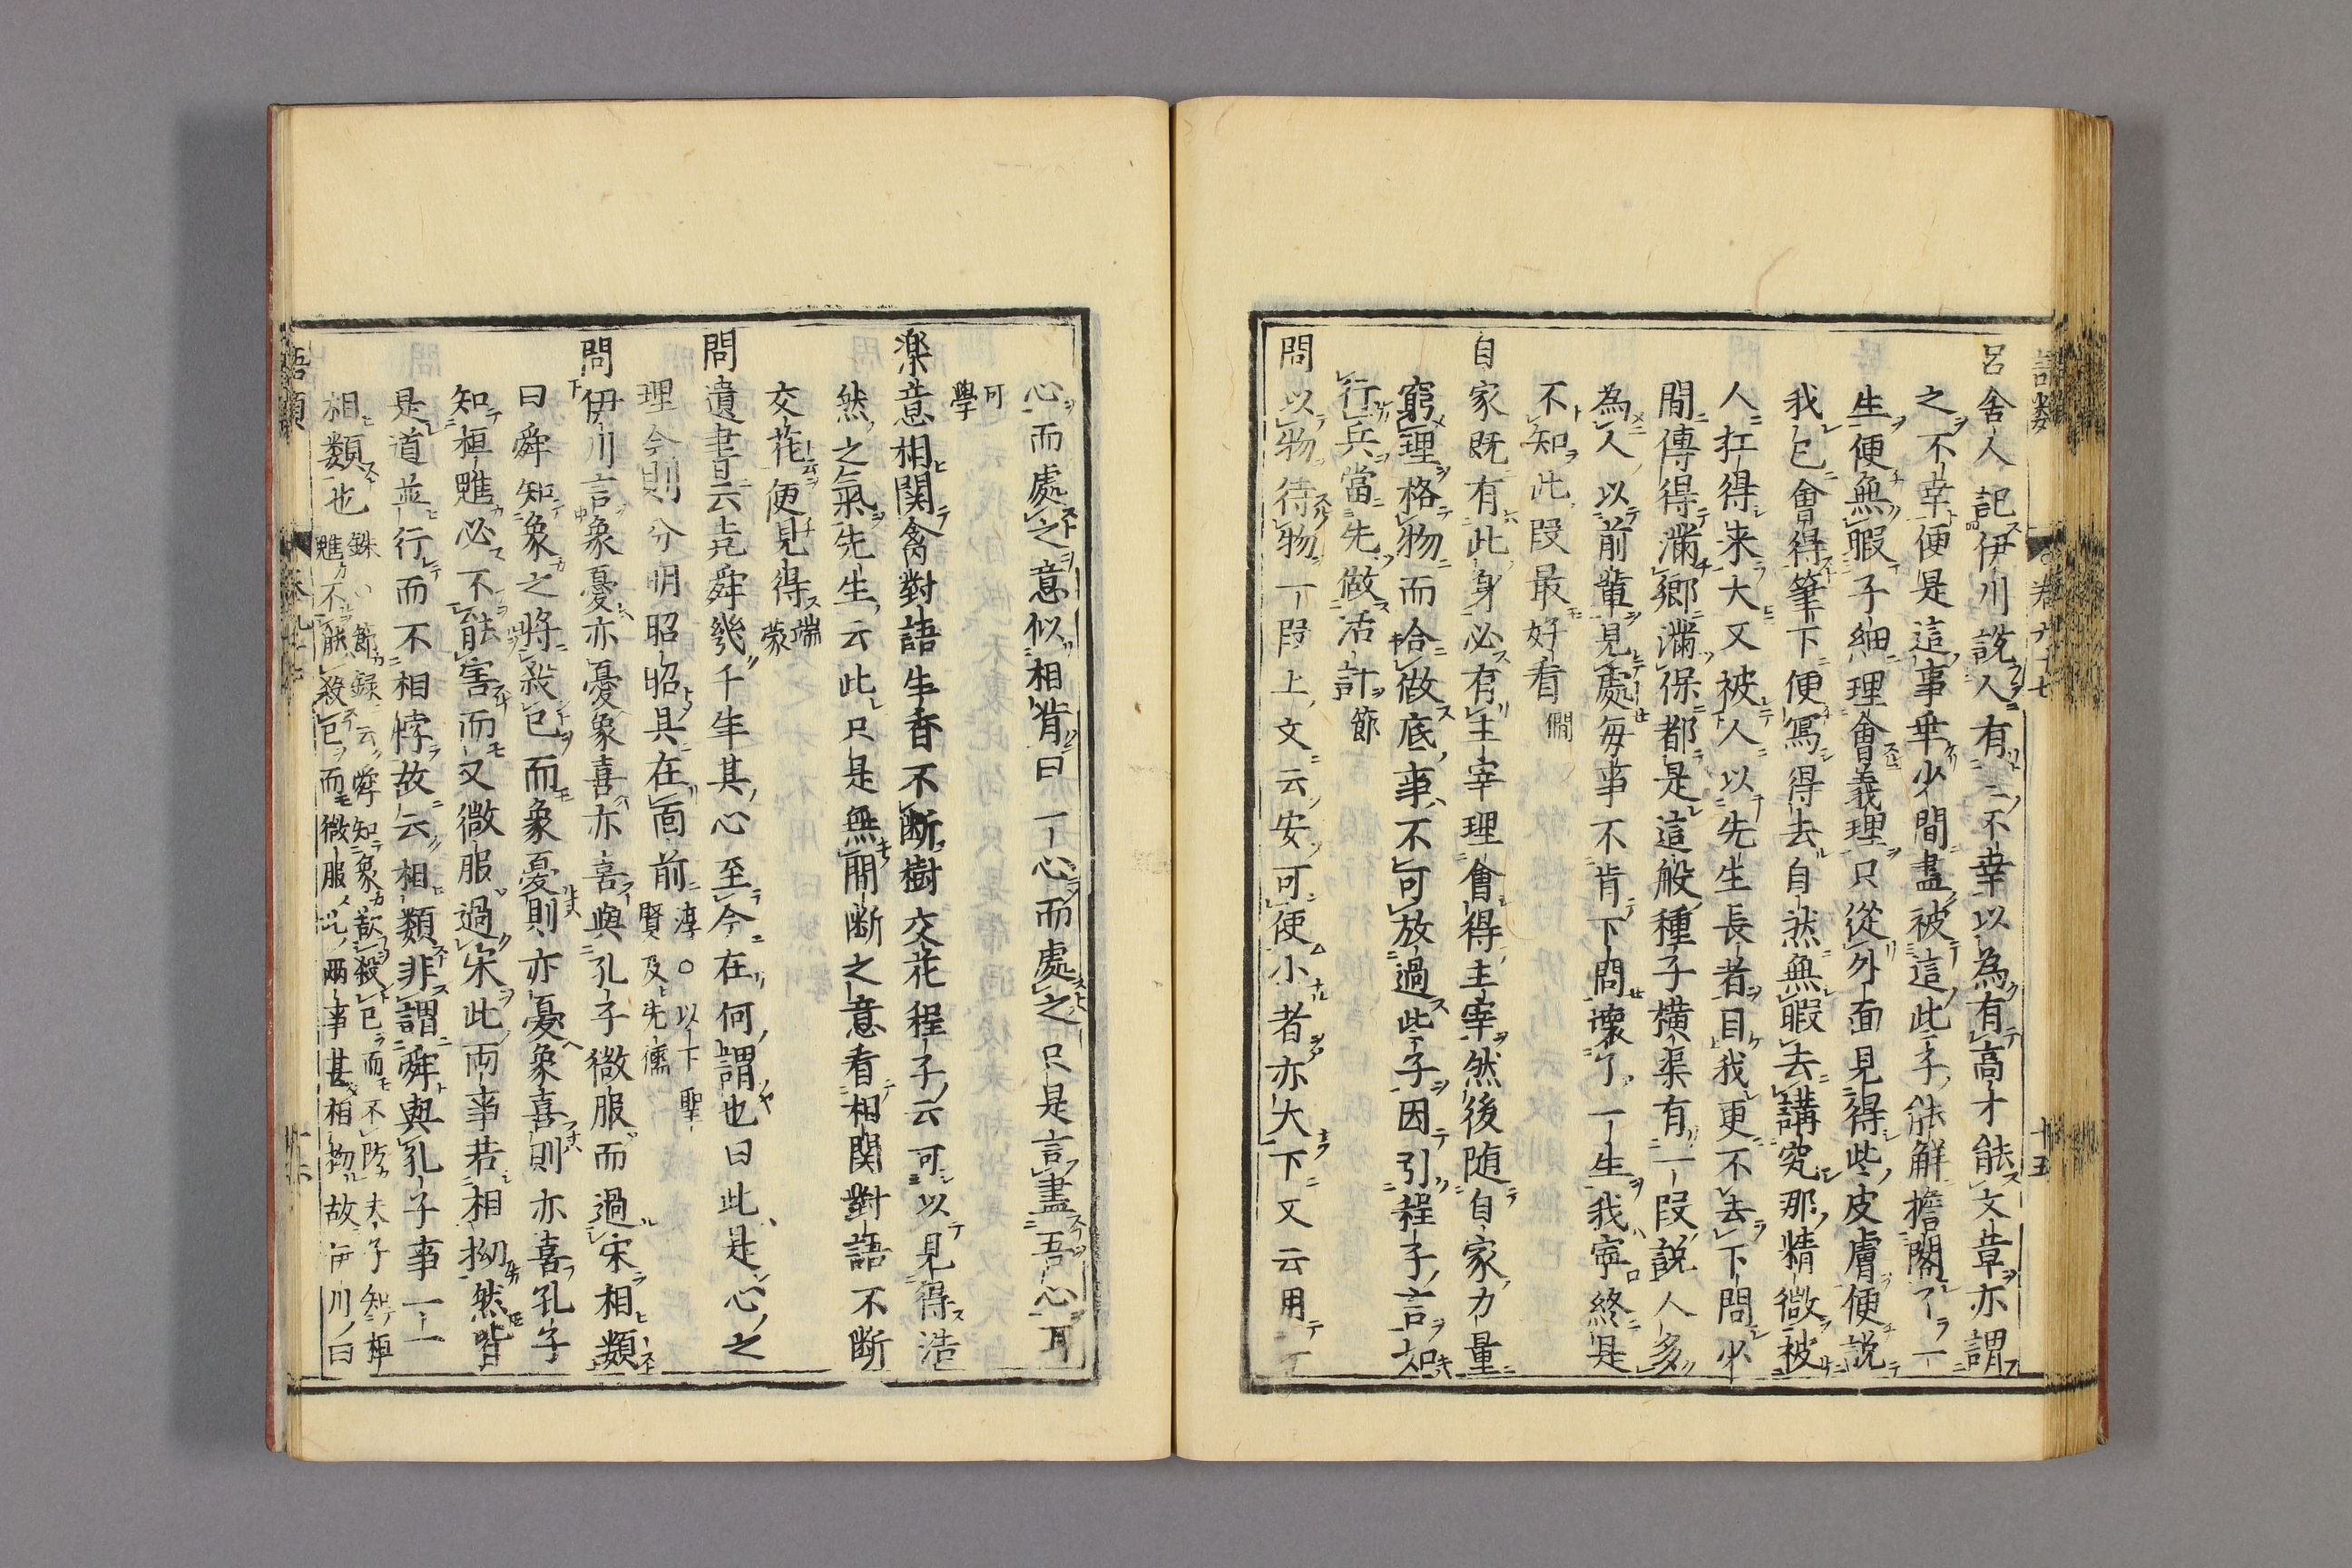 呂舍人記伊川說人有三不幸以為有高才能文章亦謂
之不幸便是這事乖少間盡被這些子能解擔閣了一
生便無暇子細理會義理只從外面見得些皮膚便說
我已會得筆下便寫得去自然無暇去講究那精微被
人扛得来大又被人以先生長者目我更不去下問少
間傳得滿鄉滿保都是這般種子橫渠有一段說人多
為人以前輩見處每事不肯下問壞了一生我寧終是
不知此段最好看 僩
自家既有此身必有主宰理會得主宰然後随自家力量
窮理格物而合做底事不可放過些子因引程子言如
行兵當先做活計 節
問以物待物一段上文云安可使小者亦大下又云用一
心而處之意似相背曰一心而處之只是言盡吾心耳
可學
楽意相関禽對語生香不断樹交花程子云可以見得浩
然之氣先生云此只是無間断之意看相関對語不断
交花便見得 端蒙
問遺書云堯舜幾千年其心至今在何謂也曰此是心之
理今則分明昭昭具在面前 淳 ○以下聖賢及先儒
問伊川言象憂亦憂象喜亦喜與孔子微服而過宋相類
曰舜知象之將殺已而象憂則亦憂象喜則亦喜孔子
知桓魋必不能害而又微服過宋此両事若相拗然皆
是道並行而不相悖故云相類非謂舜與孔子事一一
相類也 銖 節録云舜知象欲殺已而不防夫子知桓
魋不能殺已而微服此兩事甚相拗故伊川曰